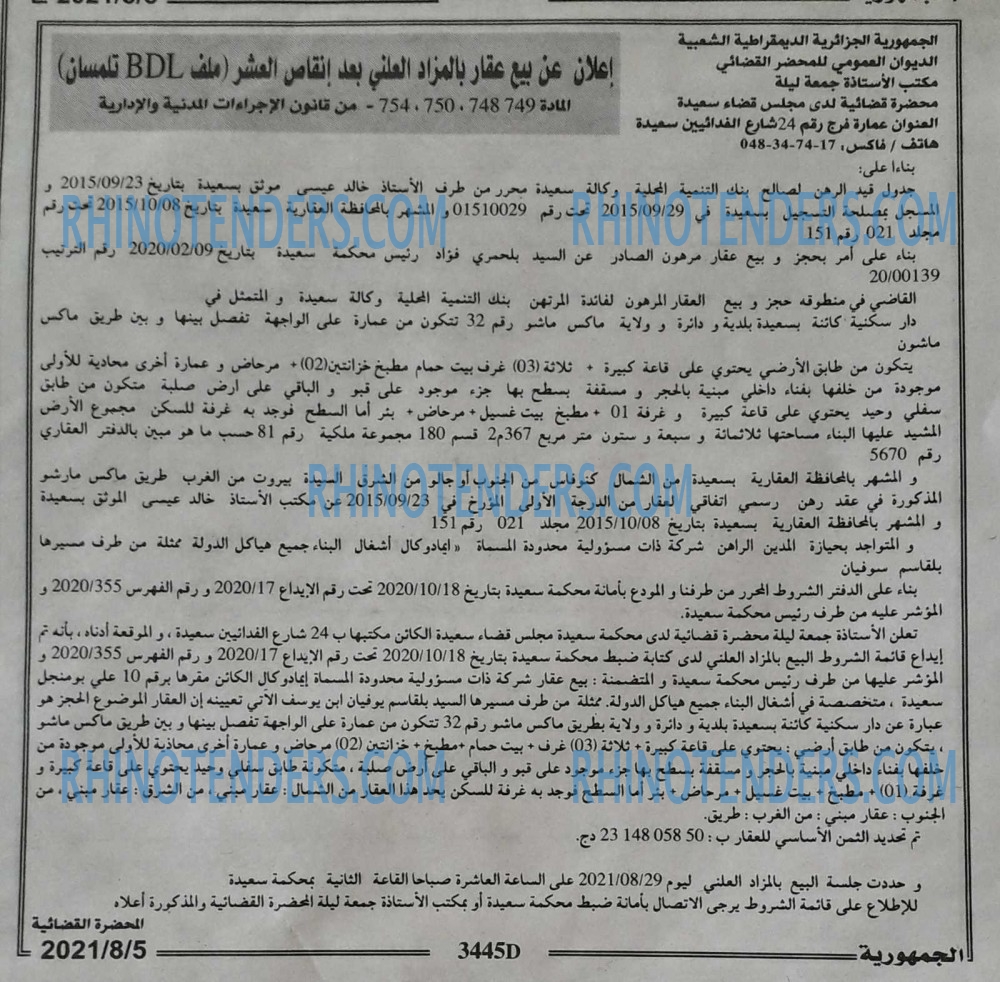 الجمهورية الجزائرية الديمقراطية الشعبية
الديوان العمومي للمحضر القضائي
مكتب الأستاذة جمعة ليلة
محضرة قضائية لدى مجلس قضاء سعيدة
العنوان عمارة فرج رقم 24 شارع الفدائيين سعيدة
هاتف / فاكس: 17-74-34-048
إعلان عن بيع عقار بالمزاد العلني بعد إنقاص العشر (ملف BDL تلمسان)
المادة 749 748 ، 750 ، 754 - من قانون الإجراءات المدنية والإدارية
بناءا على:
جدول قيد الرهن لصالح بنك التنمية المحلية وكالة سعيدة محرر من طرف الأستاذ خالد عيسى موثق بسعيدة بتاريخ 2015/09/23 و
المسجل بمصلحة التسجيل بسعيدة في 2015/09/29 تحت رقم 01510029 و المشهر بالمحافظة العقارية سعيدة بتاريخ 2015/10/08 تحت رقم
مجلد 021 رقم 151
بناء على أمر بحجز و بيع عقار مرهون الصادر عن السيد بلحمري فؤاد رئيس محكمة سعيدة بتاريخ 2020/02/09 رقم الترتيب
20/00139
القاضي في منطوقه حجز و بيع العقار المرهون لفائدة المرتهن بنك التنمية المحلية وكالة سعيدة و المتمثل في
دار سكنية كائنة بسعيدة بلدية و دائرة و ولاية ماكس ماشو رقم 32 تتكون من عمارة على الواجهة تفصل بينها و بين طريق ماكس
ماشون
يتكون من طابق الأرضي يحتوي على قاعة كبيرة + ثلاثة (03) غرف بيت حمام مطبخ خزانتين(02)+ مرحاض و عمارة أخرى محادية للأولى
موجودة من خلفها بفناء داخلي مبنية بالحجر و مسقفة بسطح بها جزء موجود على قبو و الباقي على ارض صلبة متكون من طابق
سفلي وحيد يحتوي على قاعة كبيرة و غرفة 01 + مطبخ بيت غسيل + مرحاض + بئر أما السطح فوجد به غرفة للسكن مجموع الأرض
المشيد عليها البناء مساحتها ثلاثمائة و سبعة و ستون متر مربع 367م2 قسم 180 مجموعة ملكية رقم 81 حسب ما هو مبين بالدفتر العقاري
رقم 5670
و المشهر بالمحافظة العقارية بسعيدة من الشمال كنوفاس من الجنوب أوجالو من الشرق السيدة بيروت من الغرب طريق ماكس مارشو
المذكورة في عقد رهن رسمي اتفاقي لعقار من الدرجة الأولى المؤرخ في 2015/09/23 عن مكتب الأستاذ خالد عيسى الموثق بسعيدة
و المشهر بالمحافظة العقارية بسعيدة بتاريخ 2015/10/08 مجلد 021 رقم 151
و المتواجد بحيازة المدين الراهن شركة ذات مسؤولية محدودة المسماة « ايمادوكال أشغال البناء جميع هياكل الدولة ممثلة من طرف مسيرها
بلقاسم سوفيان
بناء على الدفتر الشروط المحرر من طرفنا و المودع بأمانة محكمة سعيدة بتاريخ 2020/10/18 تحت رقم الإيداع 2020/17 و رقم الفهرس 2020/355 و
المؤشر عليه من طرف رئيس محكمة سعيدة.
تعلن الأستاذة جمعة ليلة محضرة قضائية لدى محكمة سعيدة مجلس قضاء سعيدة الكائن مكتبها ب 24 شارع الفدائيين سعيدة ، و الموقعة أدناه ، بأنه تم
إيداع قائمة الشروط البيع بالمزاد العلني لدى كتابة ضبط محكمة سعيدة بتاريخ 2020/10/18 تحت رقم الإيداع 2020/17 و رقم الفهرس 2020/355 و
المؤشر عليها من طرف رئيس محكمة سعيدة و المتضمنة : بيع عقار شركة ذات مسؤولية محدودة المسماة إيمادوكال الكائن مقرها برقم 10 علي بومنجل
سعيدة ، متخصصة في أشغال البناء جميع هياكل الدولة. ممثلة من طرف مسيرها السيد بلقاسم يوفيان ابن يوسف الآتي تعيينه إن العقار الموضوع الحجز هو
عبارة عن دار سكنية كائنة بسعيدة بلدية و دائرة و ولاية بطريق ماكس ماشو رقم 32 تتكون من عمارة على الواجهة تفصل بينها و بين طريق ماكس ماشو
، يتكون من طابق أرضي : يحتوي على قاعة كبيرة + ثلاثة (03) غرف + بيت حمام +مطبخ + خزانتين (02) مرحاض و عمارة أخرى محاذية للأولى موجودة من
خلفها بفناء داخلي مبنية بالحجر و مسقفة بسطح بها جزء موجود على قبو و الباقي على أرض صلبة ، متكونة طابق سفلي وحيد يحتوي على قاعة كبيرة و
غرفة (01) + مطبخ + بيت غسيل + مرحاض + بئر أما السطح فوجد به غرفة للسكن يحد هذا العقار من الشمال : عقار مبني ، من الشرق : عقار مبني ، من
الجنوب : عقار مبني : من الغرب : طريق.
تم تحديد الثمن الأساسي للعقار ب : 50 058 148 23 دج.
و حددت جلسة البيع بالمزاد العلني ليوم 2021/08/29 على الساعة العاشرة صباحا القاعة الثانية بمحكمة سعيدة
للإطلاع على قائمة الشروط يرجى الاتصال بأمانة ضبط محكمة سعيدة أو بمكتب الأستاذة جمعة ليلة المحضرة القضائية والمذكورة أعلاه
المحضرة القضائية
الجمهورية
3445D
2021/8/5
RHINOTENDERS.COM
RHINOTENDERS.COM
RHINOTENDERS.COM
RHINOTENDERS.COM
RHINOTENDERS.COM